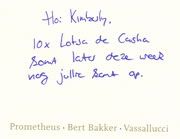 Hoi Kimberly,
10x Lotsa de Casha
komt later deze week
nog jullie kant op.
Prometheus · Bert Bakker · Vassallucci